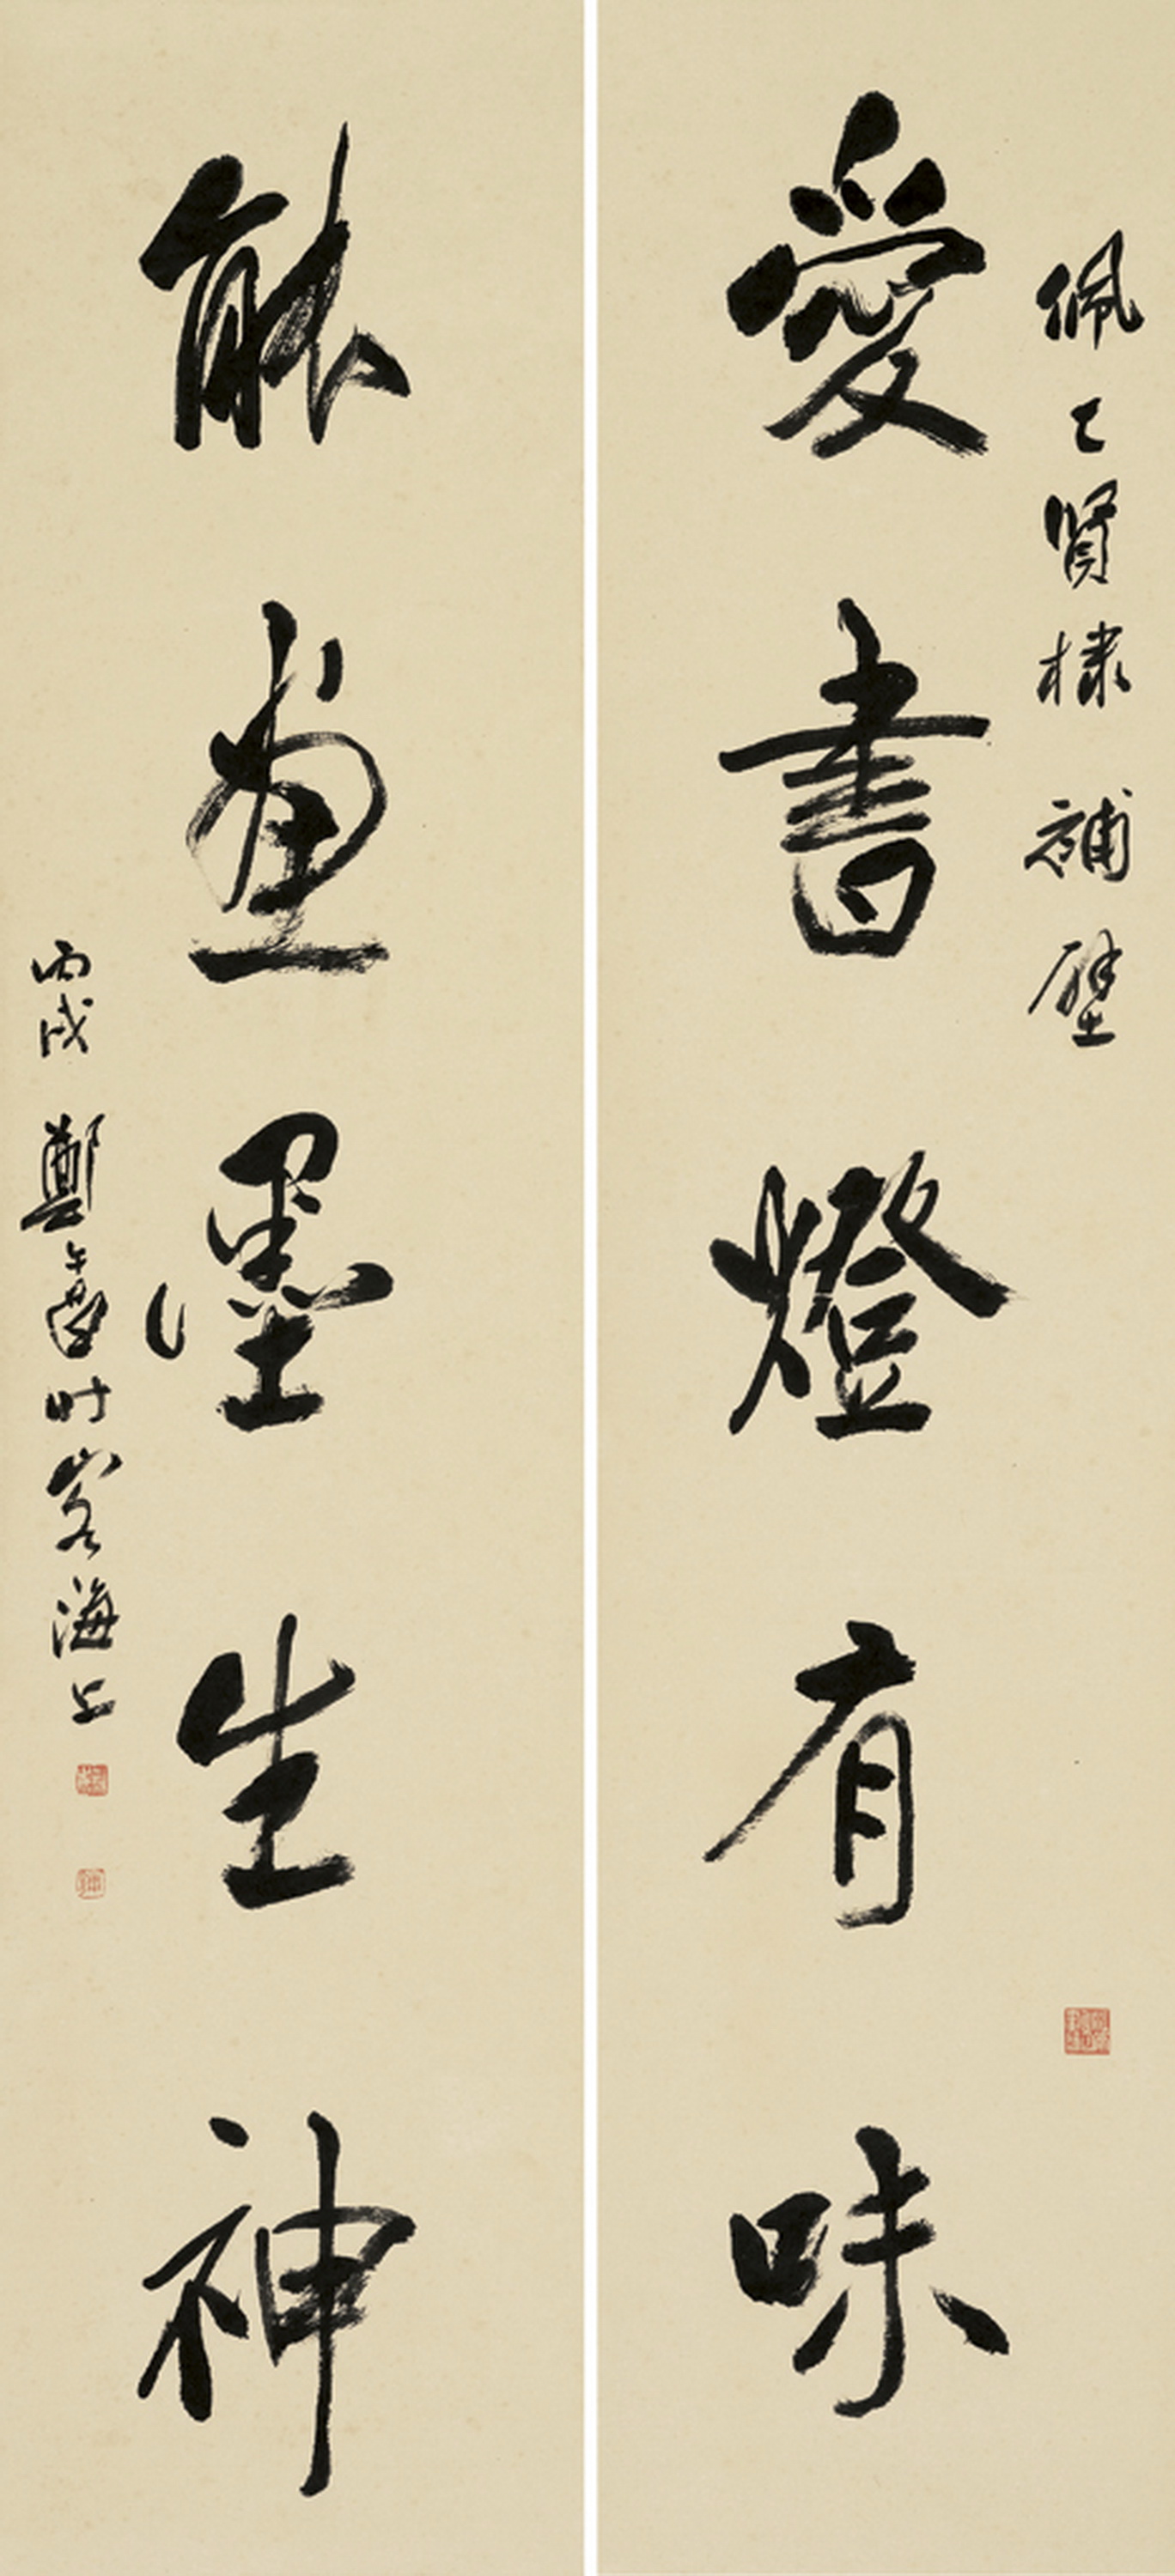 佩乙賢棣 補壁
愛書燈有味
能畫墨生神
丙戌 鄭午昌時客海上